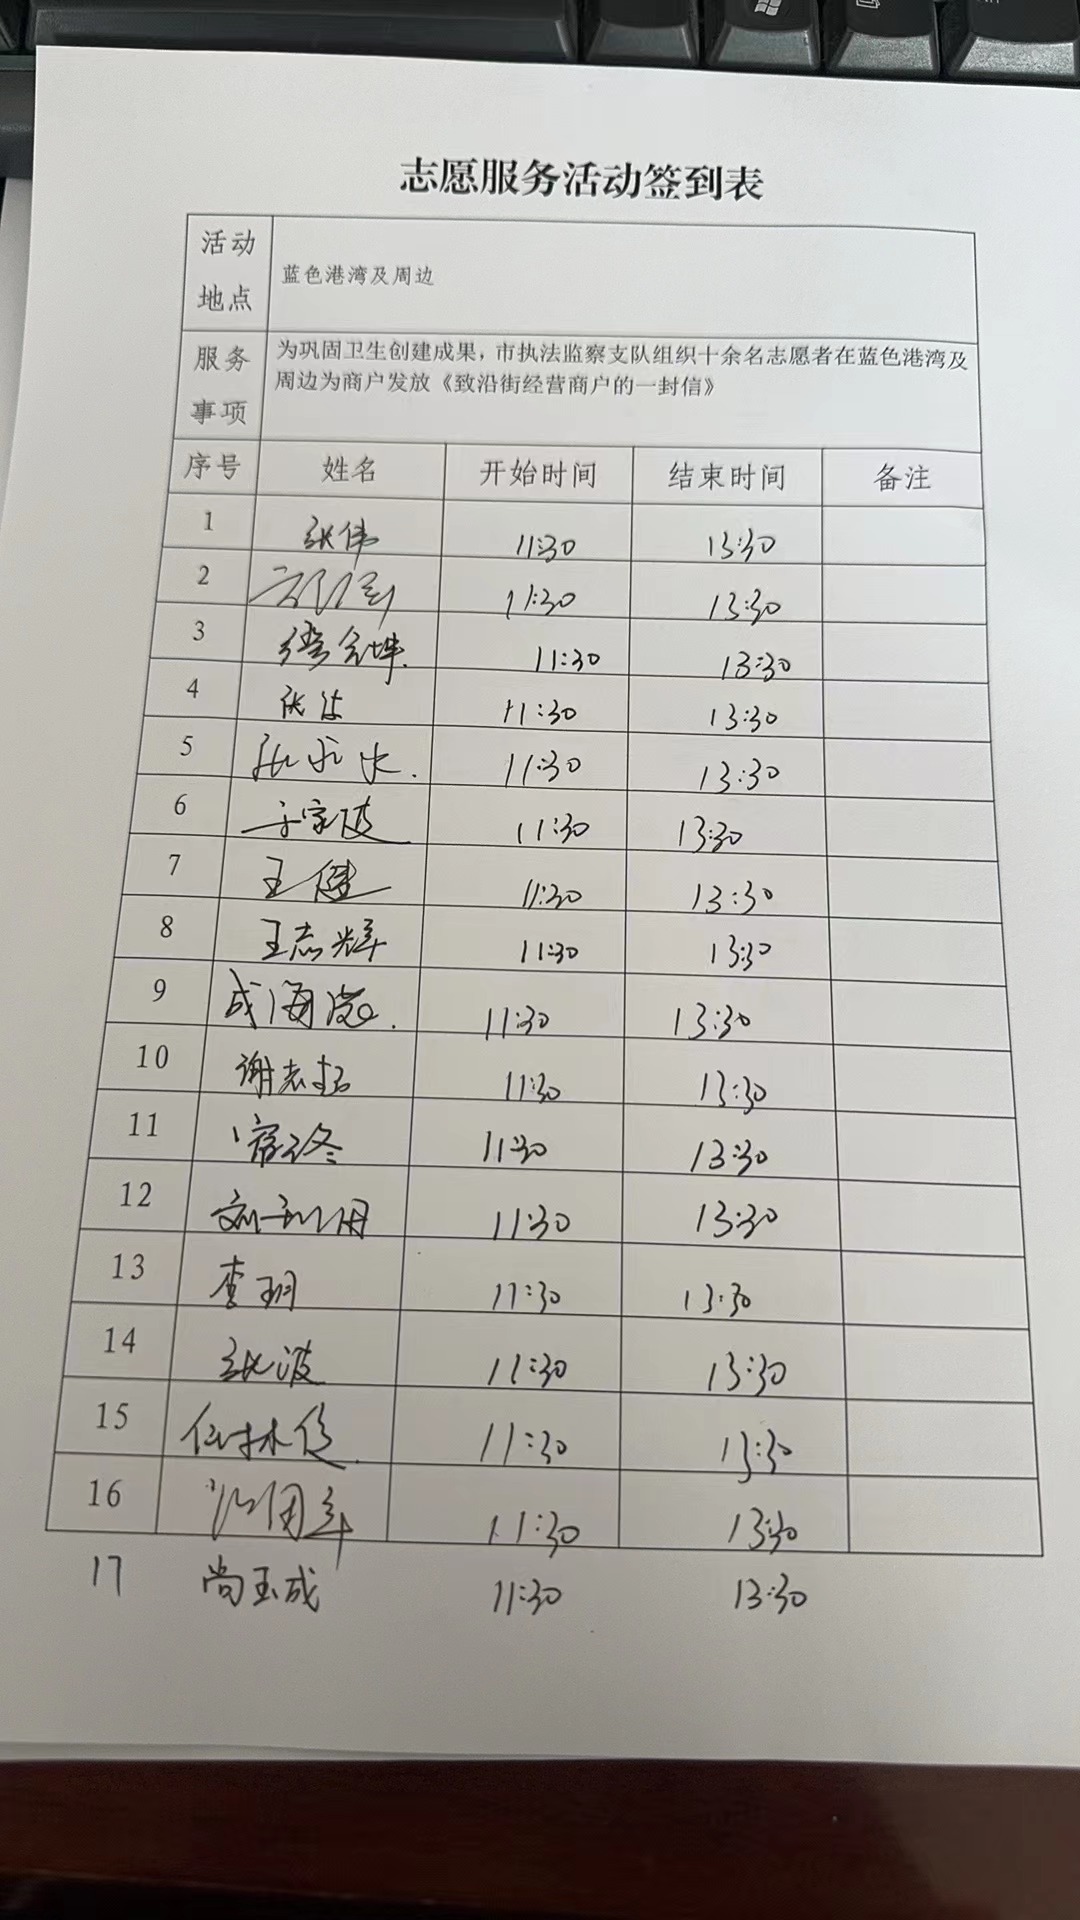 志愿服务活动签到表
活动地点 蓝色港湾及周边
服务事项 为巩固卫生创建成果，市执法监察支队组织十余名志愿者在蓝色港湾及
周边为商户发放《致沿街经营商户的一封信》
序号 姓名 开始时间 结束时间 备注
1 张伟 11:30 13:30
2 11:30 13:30
3 11:30 13:30
4 张 11:30 13:30
5 11:30 13:30
6 于家 11:30 13:30
7 王健 11:30 13:30
8 王志辉 11:30 13:30
9 成海 11:30 13:30
10 谢志 11:30 13:30
11 11:30 13:30
12 刘 11:30 13:30
13 李玥 11:30 13:30
14 张波 11:30 13:30
15 11:30 13:30
16 11:30 13:30
17 尚玉成 11:30 13:30